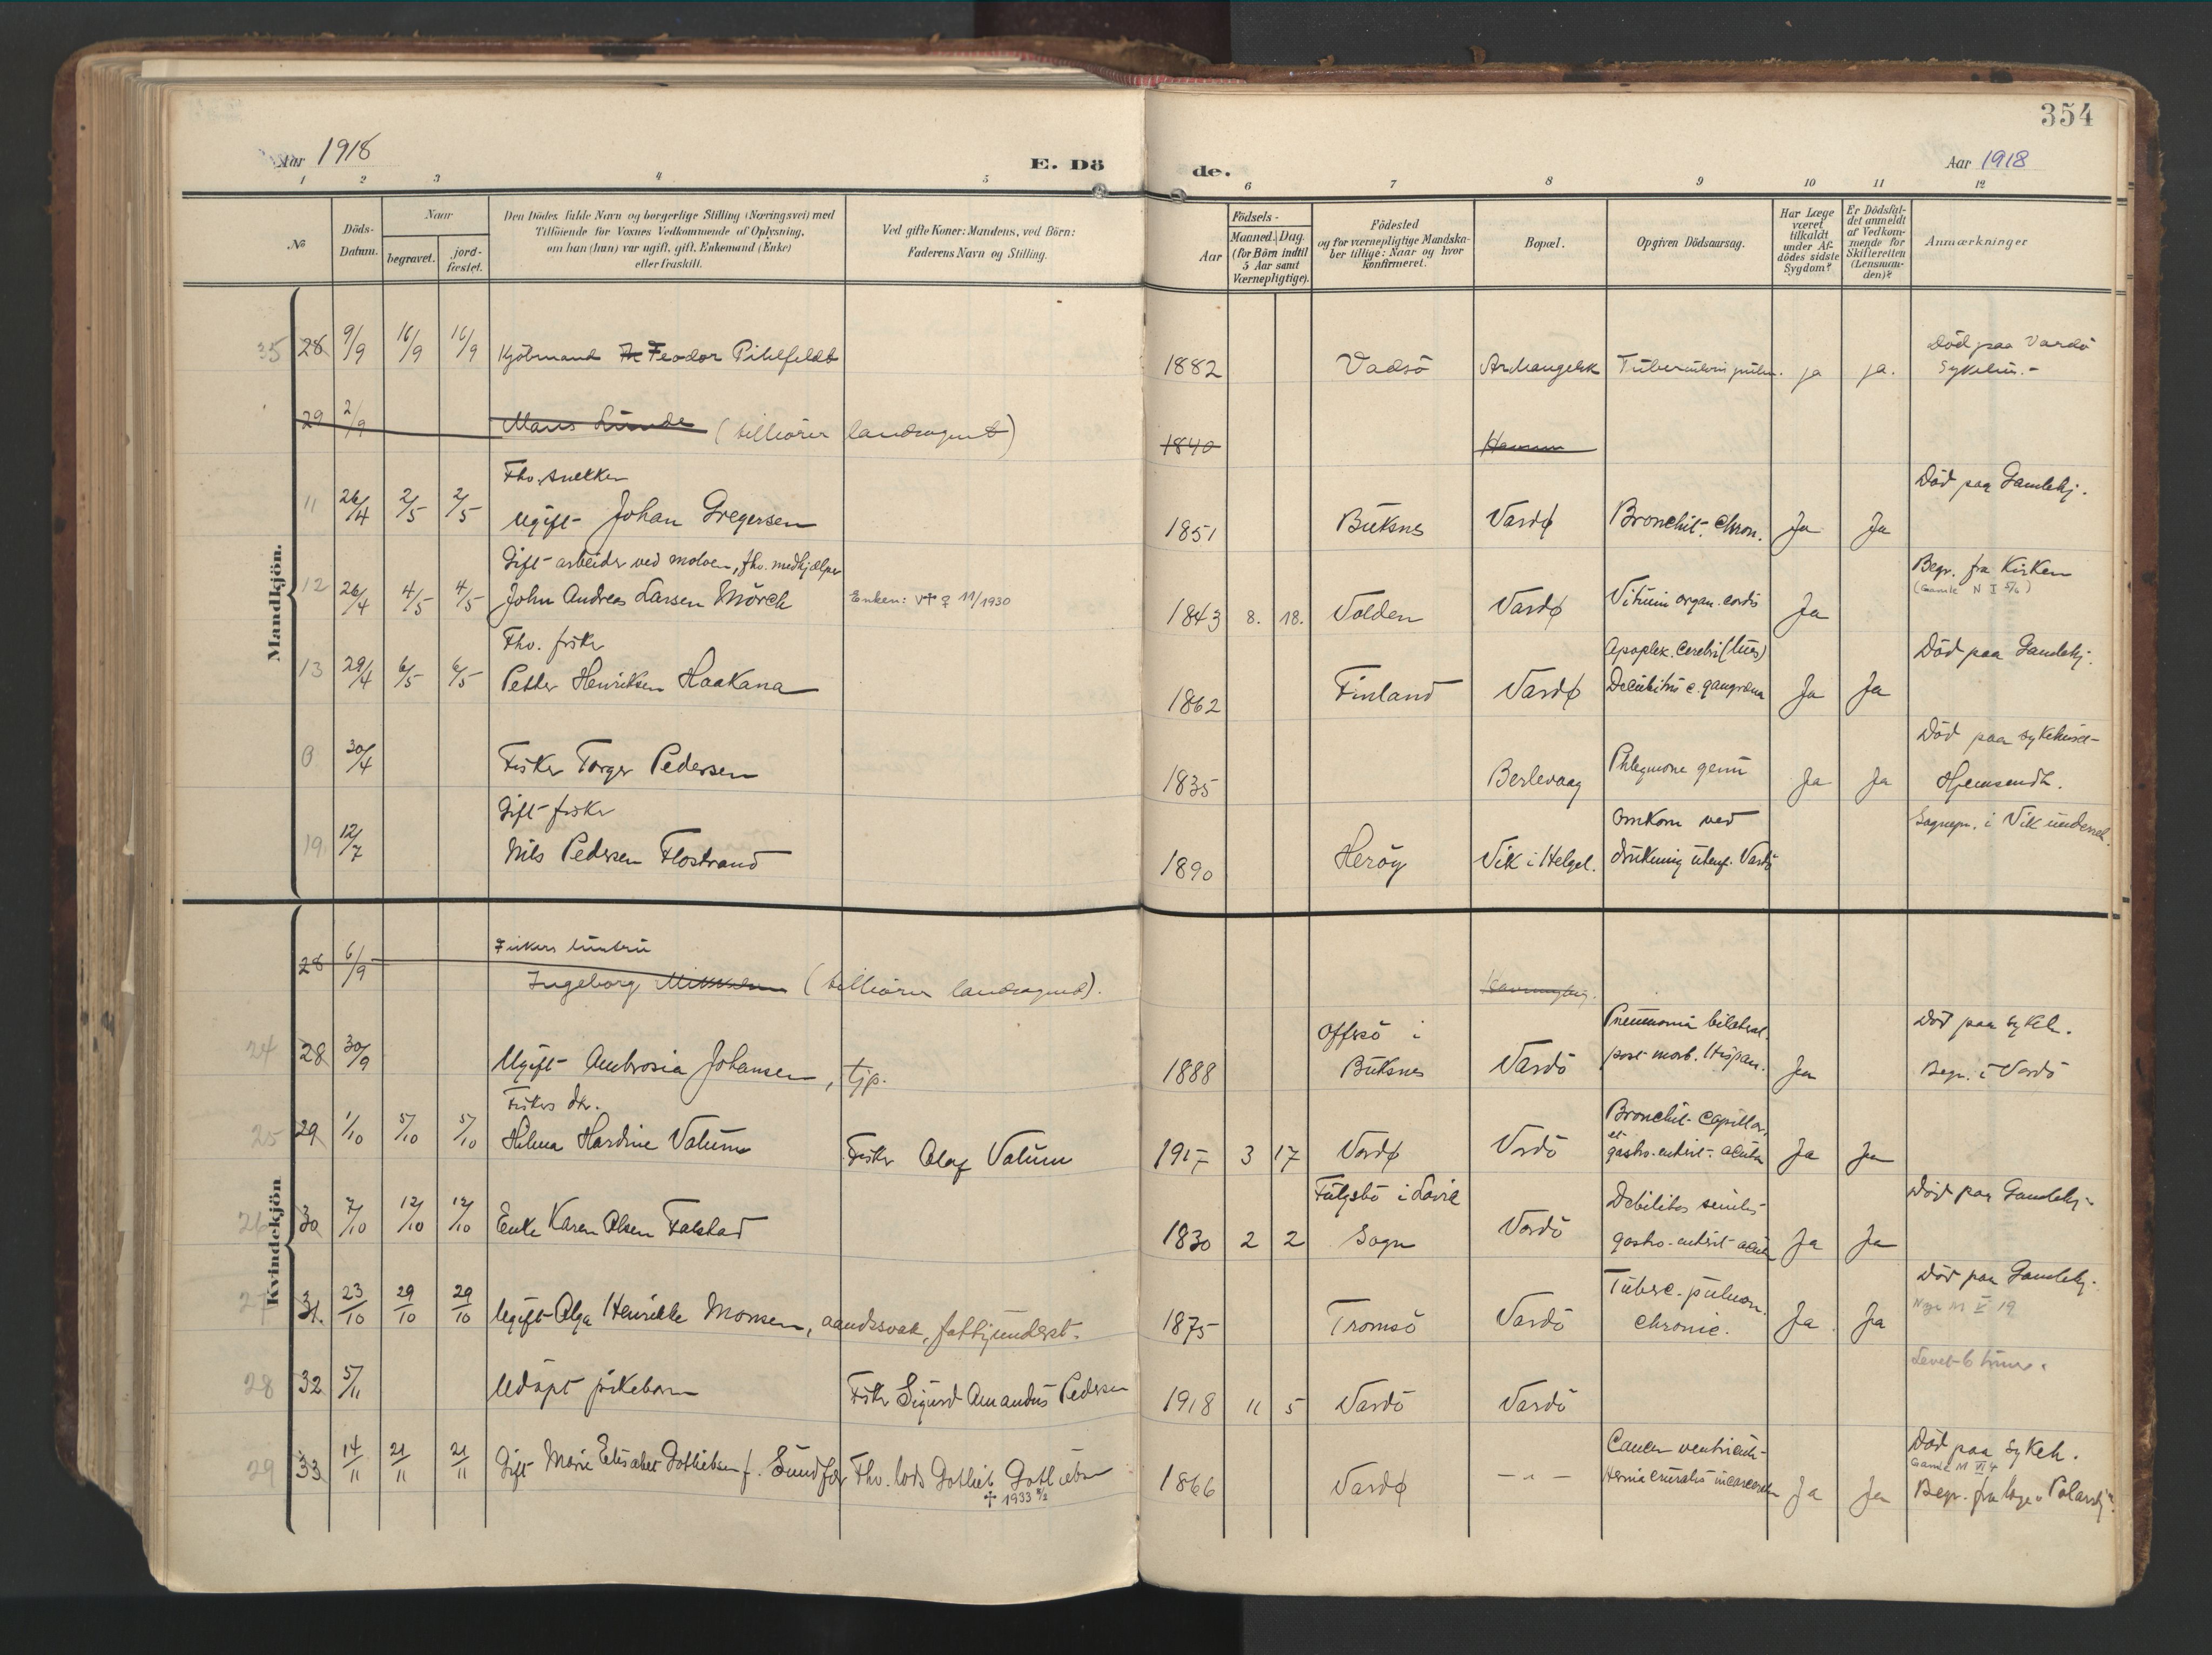 354
Aar 1918
E. Dö
de.
Aar 1918
1 2 3 4 5 6 7 8 9 10 11 12
№
Döds-Datum.
Naar
begravet.
jord-fæstet.
Den Dödes fulde Navn og borgerlige Stilling (Næringsvei) med
Tilföiende for Voxnes Vedkommende af Oplysning,
om han (hun) var ugift, gift, Enkemand (Enke)
eller fraskilt.
Ved gifte Koner: Mandens, ved Börn:
Faderens Navn og Stilling.
Födsels-
Aar
Maaned. Dag.
(for Börn indtil
5 Aar samt
Værnepligtige).
Födested
og for værnepligtige Mandska-
ber tillige: Naar og hvor
konfirmeret.
Bopæl.
Opgiven Dödsaarsag.
Har Læge
været
tilkaldt
under Af-
dödes sidste
Sygdom?
Er Dödsfal-
det anmeldt
af Vedkom-
mende for
Skifteretten
(Lensman-
den)?
Anmærkninger
Mandkjön.
35 28 9/9 16/9 16/9 Kjöbmand Feodor Pihlfeldt 1882 Vadsö Archangelsk Tuberculosis pulm. ja ja. Död paa Vardö
Sykehus.-
29 2/9 Maus Lunde (tilhörer landsognet) 1840
Fhv. snekker
11 26/4 2/5 2/5 Ugift Johan Gregersen 1851 Buksnes Vardø Bronchit. chron. Ja Ja Död paa Gamlehj.
Gift arbeider ved moloen, fhv. medhjælper
12 26/4 4/5 4/5 John Andreas Larsen Mörch Enken: V † ♀ 11/1930 1843 8. 18. Volden Vardø Vitium organ. cordis Ja Begr. fra Kirken
Fhv. fisker
13 29/4 6/5 6/5 Petter Henriksen Haakana 1862 Finland Vardø Apoplex. cerebri (lues)
Decubitus c. gangræna Ja Ja Död paa Gamlehj.
0 30/4 Fisker Torger Pedersen 1835 Berlevaag Phlegmone genu Ja Ja Död paa sykehuset
Hjemsendt.
Gift fisker
19 12/7 Nils Pedersen Flostrand 1890 Heröy Vik i Helgel. Omkom ved
drukning utenf. Vardö Sognepr. i Vik underret.
Kvindekjön
Fiskers hustru
28 6/9 Ingeborg Mikkelsen (tilhörer landsognet).
24 28 30/9 Ugift Ambrosia Johansen, tjp. 1888 Offersö i
Buksnes Vardö Pneumonia bilateral.
post morb. Hispan. Ja Död paa sykeh.
Begr. i Vardö
Fiskers dtr.
25 29 1/10 5/10 5/10 Hilma Hardine Vatum Fisker Olaf Vatum 1917 3 17 Vardø Vardö Bronchit. capillar.
et
gastro-enterit. acuta Ja Ja
26 30 7/10 12/10 12/10 Enke Karen Olsen Falstad 1830 2 2 Sogn Vardö Debilitas senilis
gastro-enterit acuta Ja Ja Död paa Gamlehj.
27 31. 23/10 29/10 29/10 Ugift Olga Henrikke Monsen, aandssvak, fattigunderst. 1875 Tromsö Vardö Tuberc. pulmon.
chronic. Ja Ja Död paa Gamlehj.
28 32 5/11 Udöpt pikebarn Fisker Sigurd Amandus Pedersen 1918 11 5 Vardö Vardö Levet 6 timer.
29 33 14/11 21/11 21/11 Gift Marie Elisabet Gotliebsen f. Sundfær Fhv. lods Gotlieb Gotliebsen
† 1933 1866 Vardø - " - Cancer ventriculi
Hernia cruralis incarcerata Ja Ja Död paa sykeh.
Begr. fra loge "Polarstj."